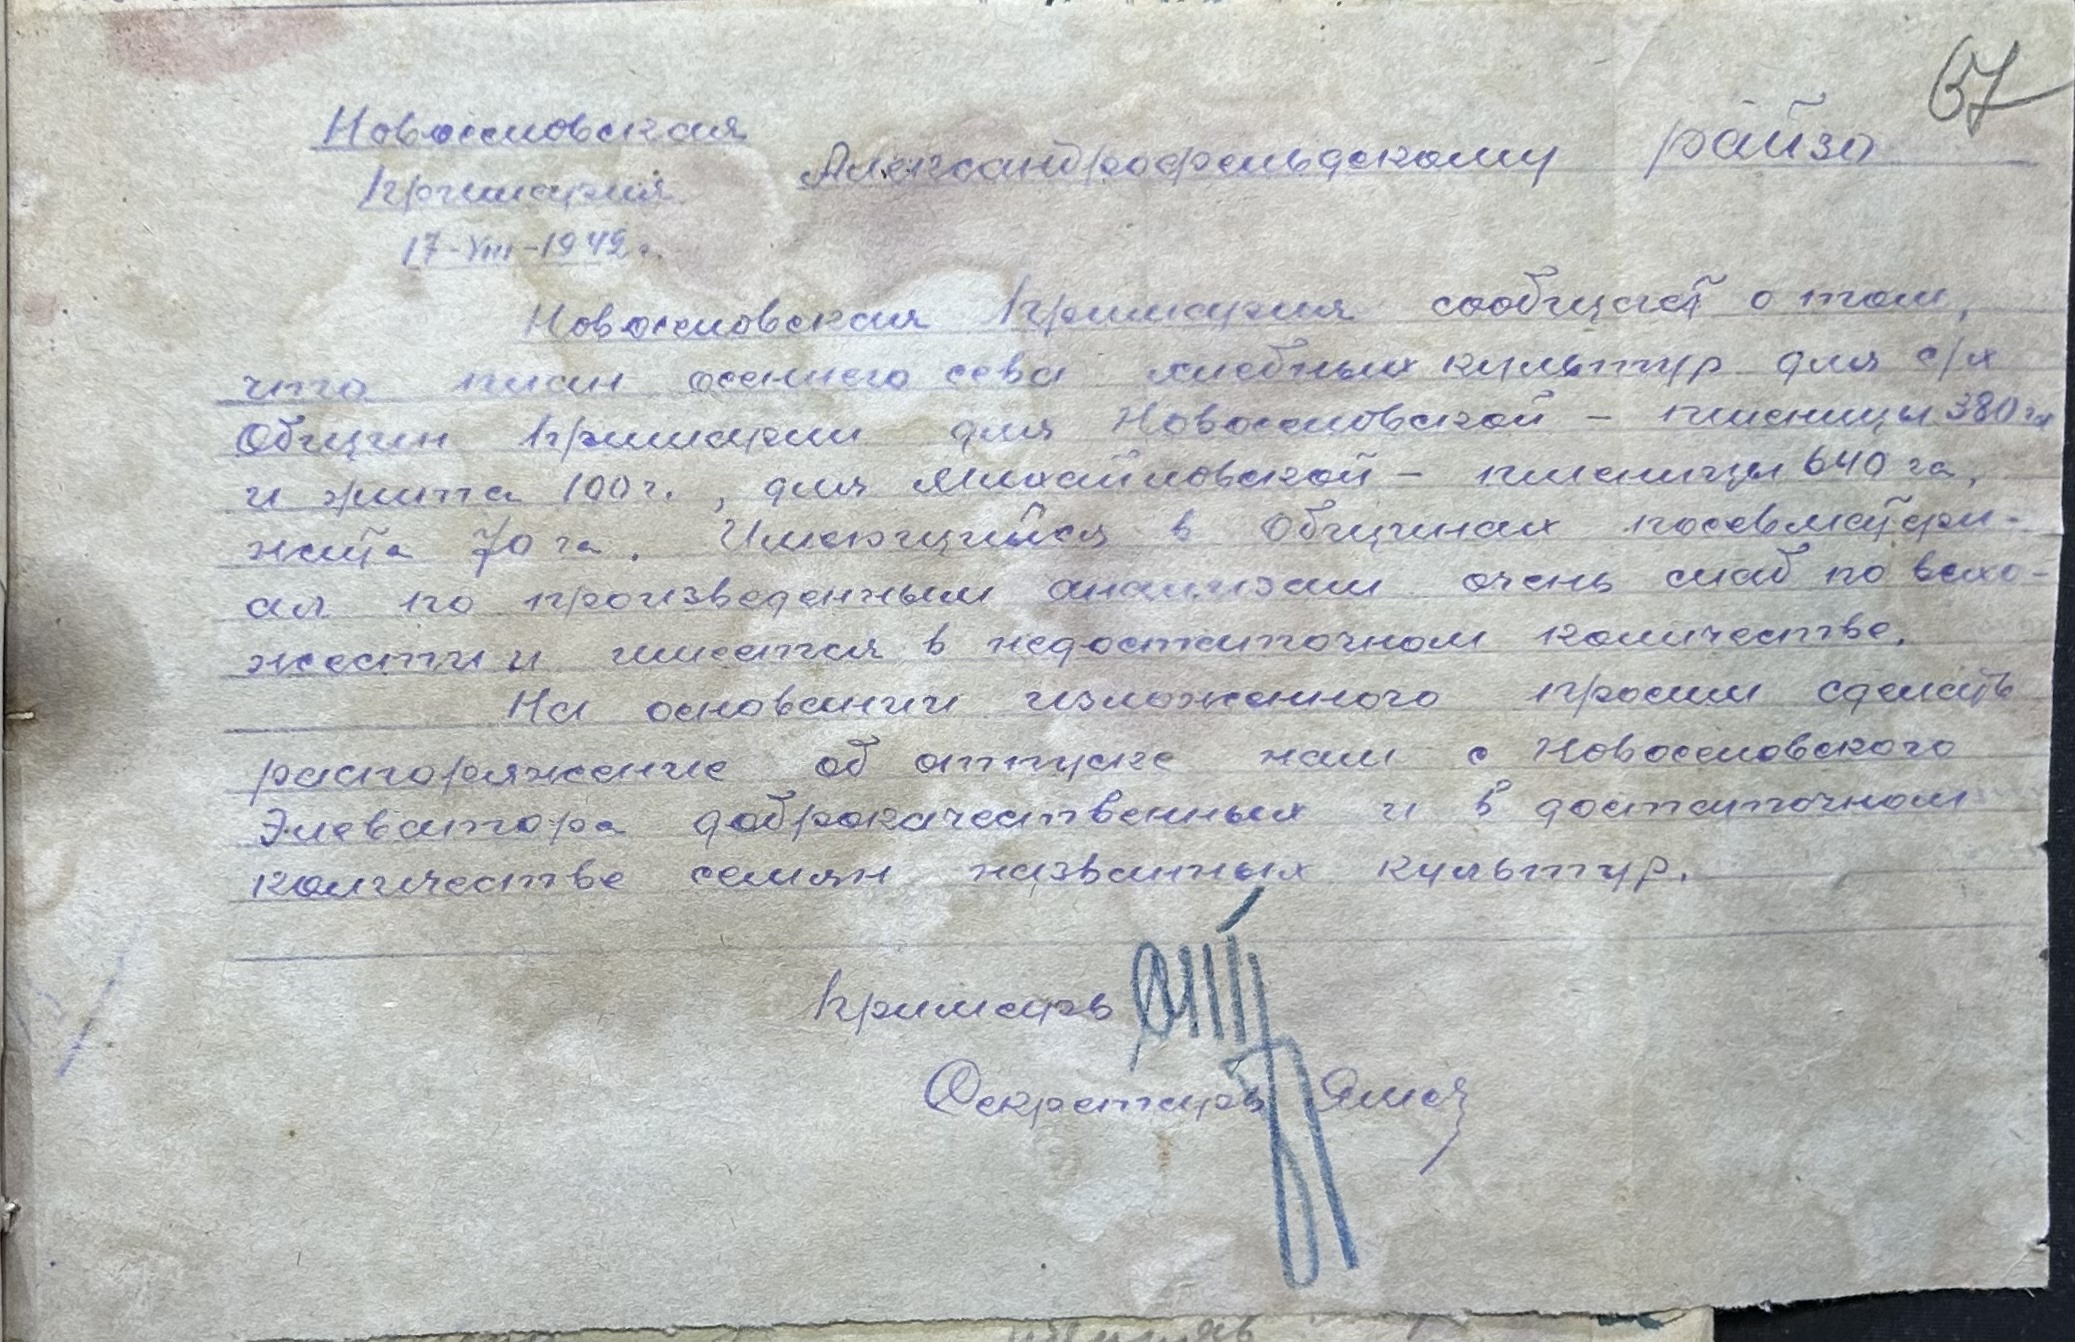 67
Новоселовская
Примария
17-VIII-1942 г.
Александрофельдскому райзо
Новоселовская Примария сообщает о том,
что план осеннего сева хлебных культур для с/х
Общин Примарии для Новоселовской – пшеницы 380 га
и жита 100 г., для Михайловской – пшеницы 640 га,
жита 70 га. Имеющийся в Общинах посевматери-
ал по произведенным анализам очень слаб по всхо-
жести и имеется в недостаточном количестве.
На основании изложенного просим сделать
распоряжение об отпуске нам с Новоселовского
Элеватора доброкачественных и в достаточном
количестве семян названных культур.
Примарь
Секретарь